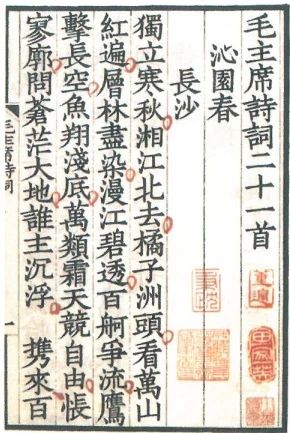 毛主席詩詞二十一首
沁園春
長沙
獨立寒秋湘江北去橘子洲頭看萬山
紅遍層林盡染漫江碧透百舸爭流鷹
擊長空魚翔淺底萬類霜天競自由悵
寥廓問蒼茫大地誰主沉浮 携來百
毛主席詩詞
一